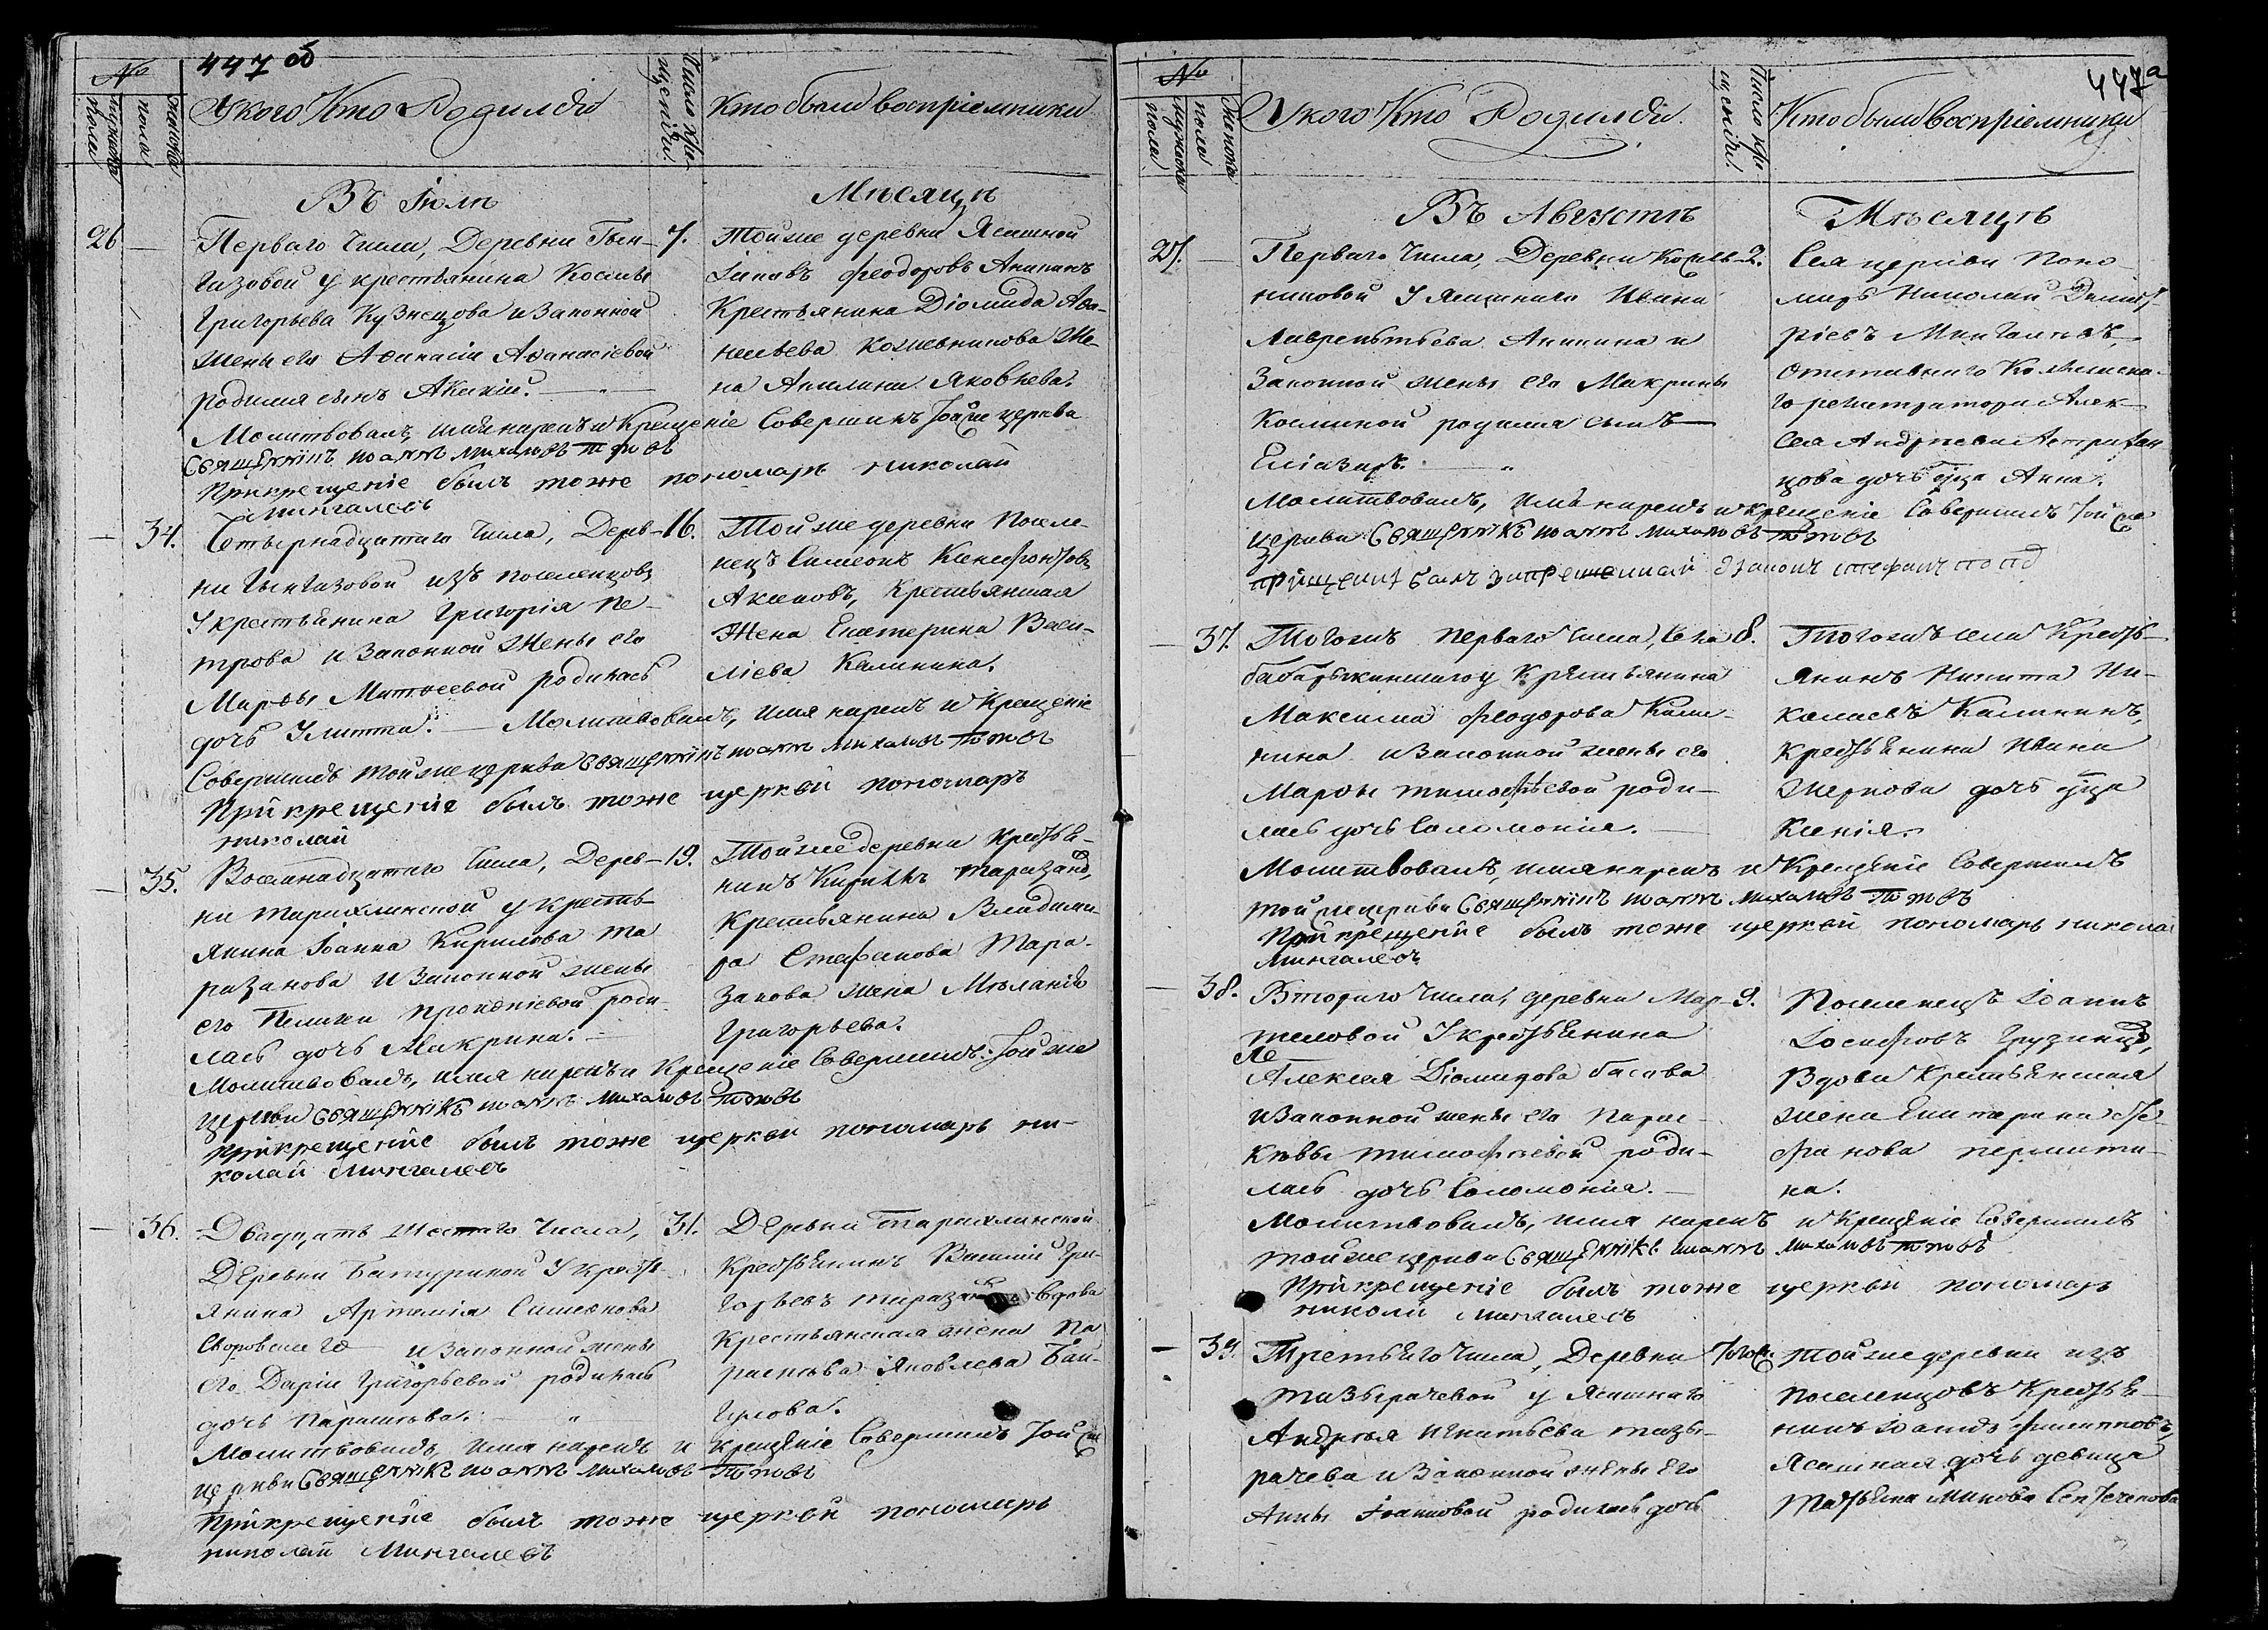 447 об
№
мужеска пола
женска пола
У кого Кто Родился
Число крещенія.
Кто были восприемники
Въ Іюлѣ Мѣсяцѣ
26 —
Перваго числа, Деревни Гын-
газовой у крестьянина Космы
Григорьева Кузнецова и законной
жены его Аѳанасіи Аѳанасіевой
родился сынъ Акакій.
7.
Той же деревни Ясашной
Іаковъ Феодоровъ Аникинъ
Крестьянина Діомида Ава-
кумова Кожевникова Же-
на Акилина Яковлева.
Молитвовалъ, имя нарекъ и Крещеніе Совершилъ той же церкви
Священникъ Иоаннъ Михаловъ Титовъ
При крещеніе былъ тоже пономарь николай
мингалевъ
— 34.
Четырнадцатаго числа, Дерев-
ни Гынгазовой изъ поселенцовъ
У крестьянина Григорія Пе-
трова и Законной Жены его
Марѳы Матѳеевой родилась
дочь Улитта. — Молитвовалъ, имя нарекъ и Крещеніе
16.
Той же деревни Поселе-
нецъ Симеонъ Ксенофонтовъ
Аксеновъ, Крестьянская
Жена Екатерина Васи-
лiева Калинина.
Совершилъ той же церкви Священникъ Иоаннъ Михаловъ Титовъ
При крещеніе былъ тоже церкви пономарь
николай
— 35.
Восемнадцатаго числа, Дерев-
ни Тарахлинской у кресть-
янина Іоанна Кирилова Та
разанова и Законной жены
его Пелагеи родi-
лась дочь Макрина.
19.
Той же деревни Крестья-
нинъ Кирикъ Таразановъ,
Крестьянина Владими-
ра Стефанова Тара-
занова жена Мѣланія
Григорьева.
Молитвовалъ, имя нарекъ и Крещеніе Совершилъ Той же
Церкви Священникъ Иоаннъ Михаловъ Титовъ
При крещеніе былъ тоже церкви пономарь ни-
колай Мингалевъ
— 36.
Двадцать Шестаго Числа,
Деревни Батуриной У кресть-
янина Артемія Симеонова
Сыровскаго и Законной жены
его Даріи Григорьевой родилась
дочь Парасковья.
31.
Деревни Тарахлинской
Крестьянинъ Василій Гри-
горьевъ Таразановъ Вдова
Крестьянская жена Па
расковья Яковлева
Молитвовалъ, имя нарекъ и Крещеніе Совершилъ Той же
церкви Священникъ Иоаннъ Михаловъ Титовъ
При крещеніе былъ тоже церкви пономарь
николай Мингалевъ
447а
№
мужеска пола
женска пола
У кого Кто Родился.
Число крещенія.
Кто были восприемники
Въ Августѣ Мѣсяцѣ
27. —
Перваго Числа, Деревни Кожев-
никовой У Ясашнаго Ивана
Лаврентьева Аникина и
Законной жены его Макрины
Косминой родился сынъ
Еліазаръ.
2.
Сея церкви Поно-
марь Николай Димит-
ріевъ Мингалевъ,
Отставнаго Коллежска-
го регистратора Алек-
сея Андреева Астрахан-
цова дочь двца Анна.
Молитвовалъ, имя нарекъ и крещеніе Совершилъ Той же
Церкви Священникъ Иоаннъ Михаловъ Титовъ
— 37.
Того жъ перваго числа, Села
бабарыкинскаго у Крестьянина
Максима Феодорова Кали-
нина и Законной жены его
Марѳы Тимоѳѣевой роди-
лась дочь Соломонія.
8.
Того жъ села Кресть-
янинъ Никита Ни-
колаевъ Калининъ,
Крестьянина Ивана
Жернова дочь двца
Ксенія.
Молитвовалъ, имя нарекъ и Крещеніе Совершилъ
той же церкви Священникъ Иоаннъ Михаловъ Титовъ
При крещеніе былъ тоже церкви пономарь николай
Мингалевъ
— 38.
Втораго числа, деревни Мар-
теловой У крестьянина
Алексея Діомидова басава
и Законной жены его Парас-
ковьи Тимоѳѣевой роди-
лась дочь Соломонія.
9.
Поселенецъ Іоаннъ
Іосифовъ Грузинцъ,
Вдова Крестьянская
жена Екатерина Сте-
фанова Пермити-
на.
Молитвовалъ, имя нарекъ и Крещеніе Совершилъ
той же церкви Священникъ Иоаннъ Михаловъ Титовъ
При крещеніе былъ тоже церкви пономарь
николай мингалевъ
— 39.
Третьяго числа, Деревни
Тазырачевой у Ясашнаго
Андрея Игнатьева Тазы-
рачева и Законной жены Его
Анны Іоанновой родилась дочь
Того жъ.
Той же деревни изъ
Поселенцовъ Крестья-
нинъ Іоаннъ Филипповъ,
Ясашная дочь девица
Татьяна